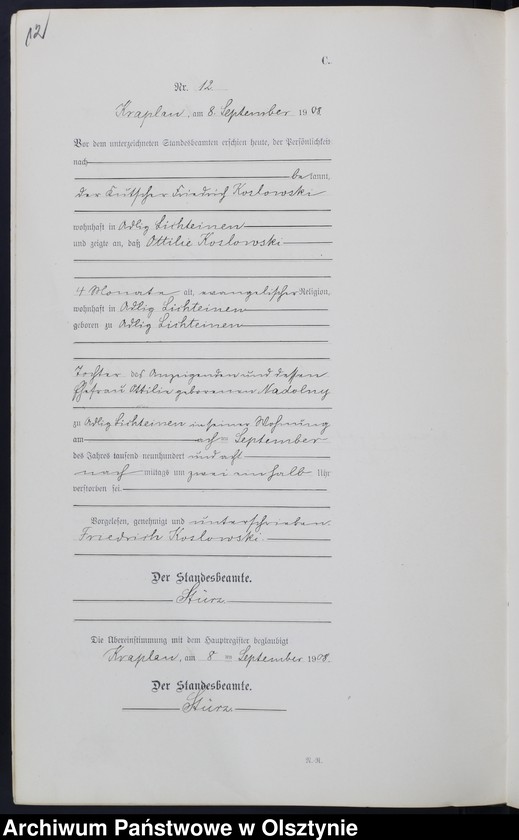 12
C.
Nr. 12
Kraplau, am 8. September 1908
Vor dem unterzeichneten Standesbeamten erschien heute, der Persönlichkeit
nach
bekannt,
der Kutscher Friedrich Koslowski
wohnhaft in Adlig Lichteinen
und zeigte an, daß Ottilie Koslowski
4 Monate alt, evangelischer Religion,
wohnhaft in Adlig Lichteinen
geboren zu Adlig Lichteinen
Tochter des Anzeigenden und dessen
Ehefrau Ottilie geborenen Nadolny
zu Adlig Lichteinen in seiner Wohnung
am September
des Jahres tausend neunhundert und acht
nach mittags um zwei einhalb Uhr
verstorben sei.
Vorgelesen, genehmigt und unterschrieben.
Friedrich Koslowski
Der Standesbeamte.
Stürz
Die Übereinstimmung mit dem Hauptregister beglaubigt
Kraplau, am 8 ten September 1908.
Der Standesbeamte.
Stürz
Archiwum Państwowe w Olsztynie